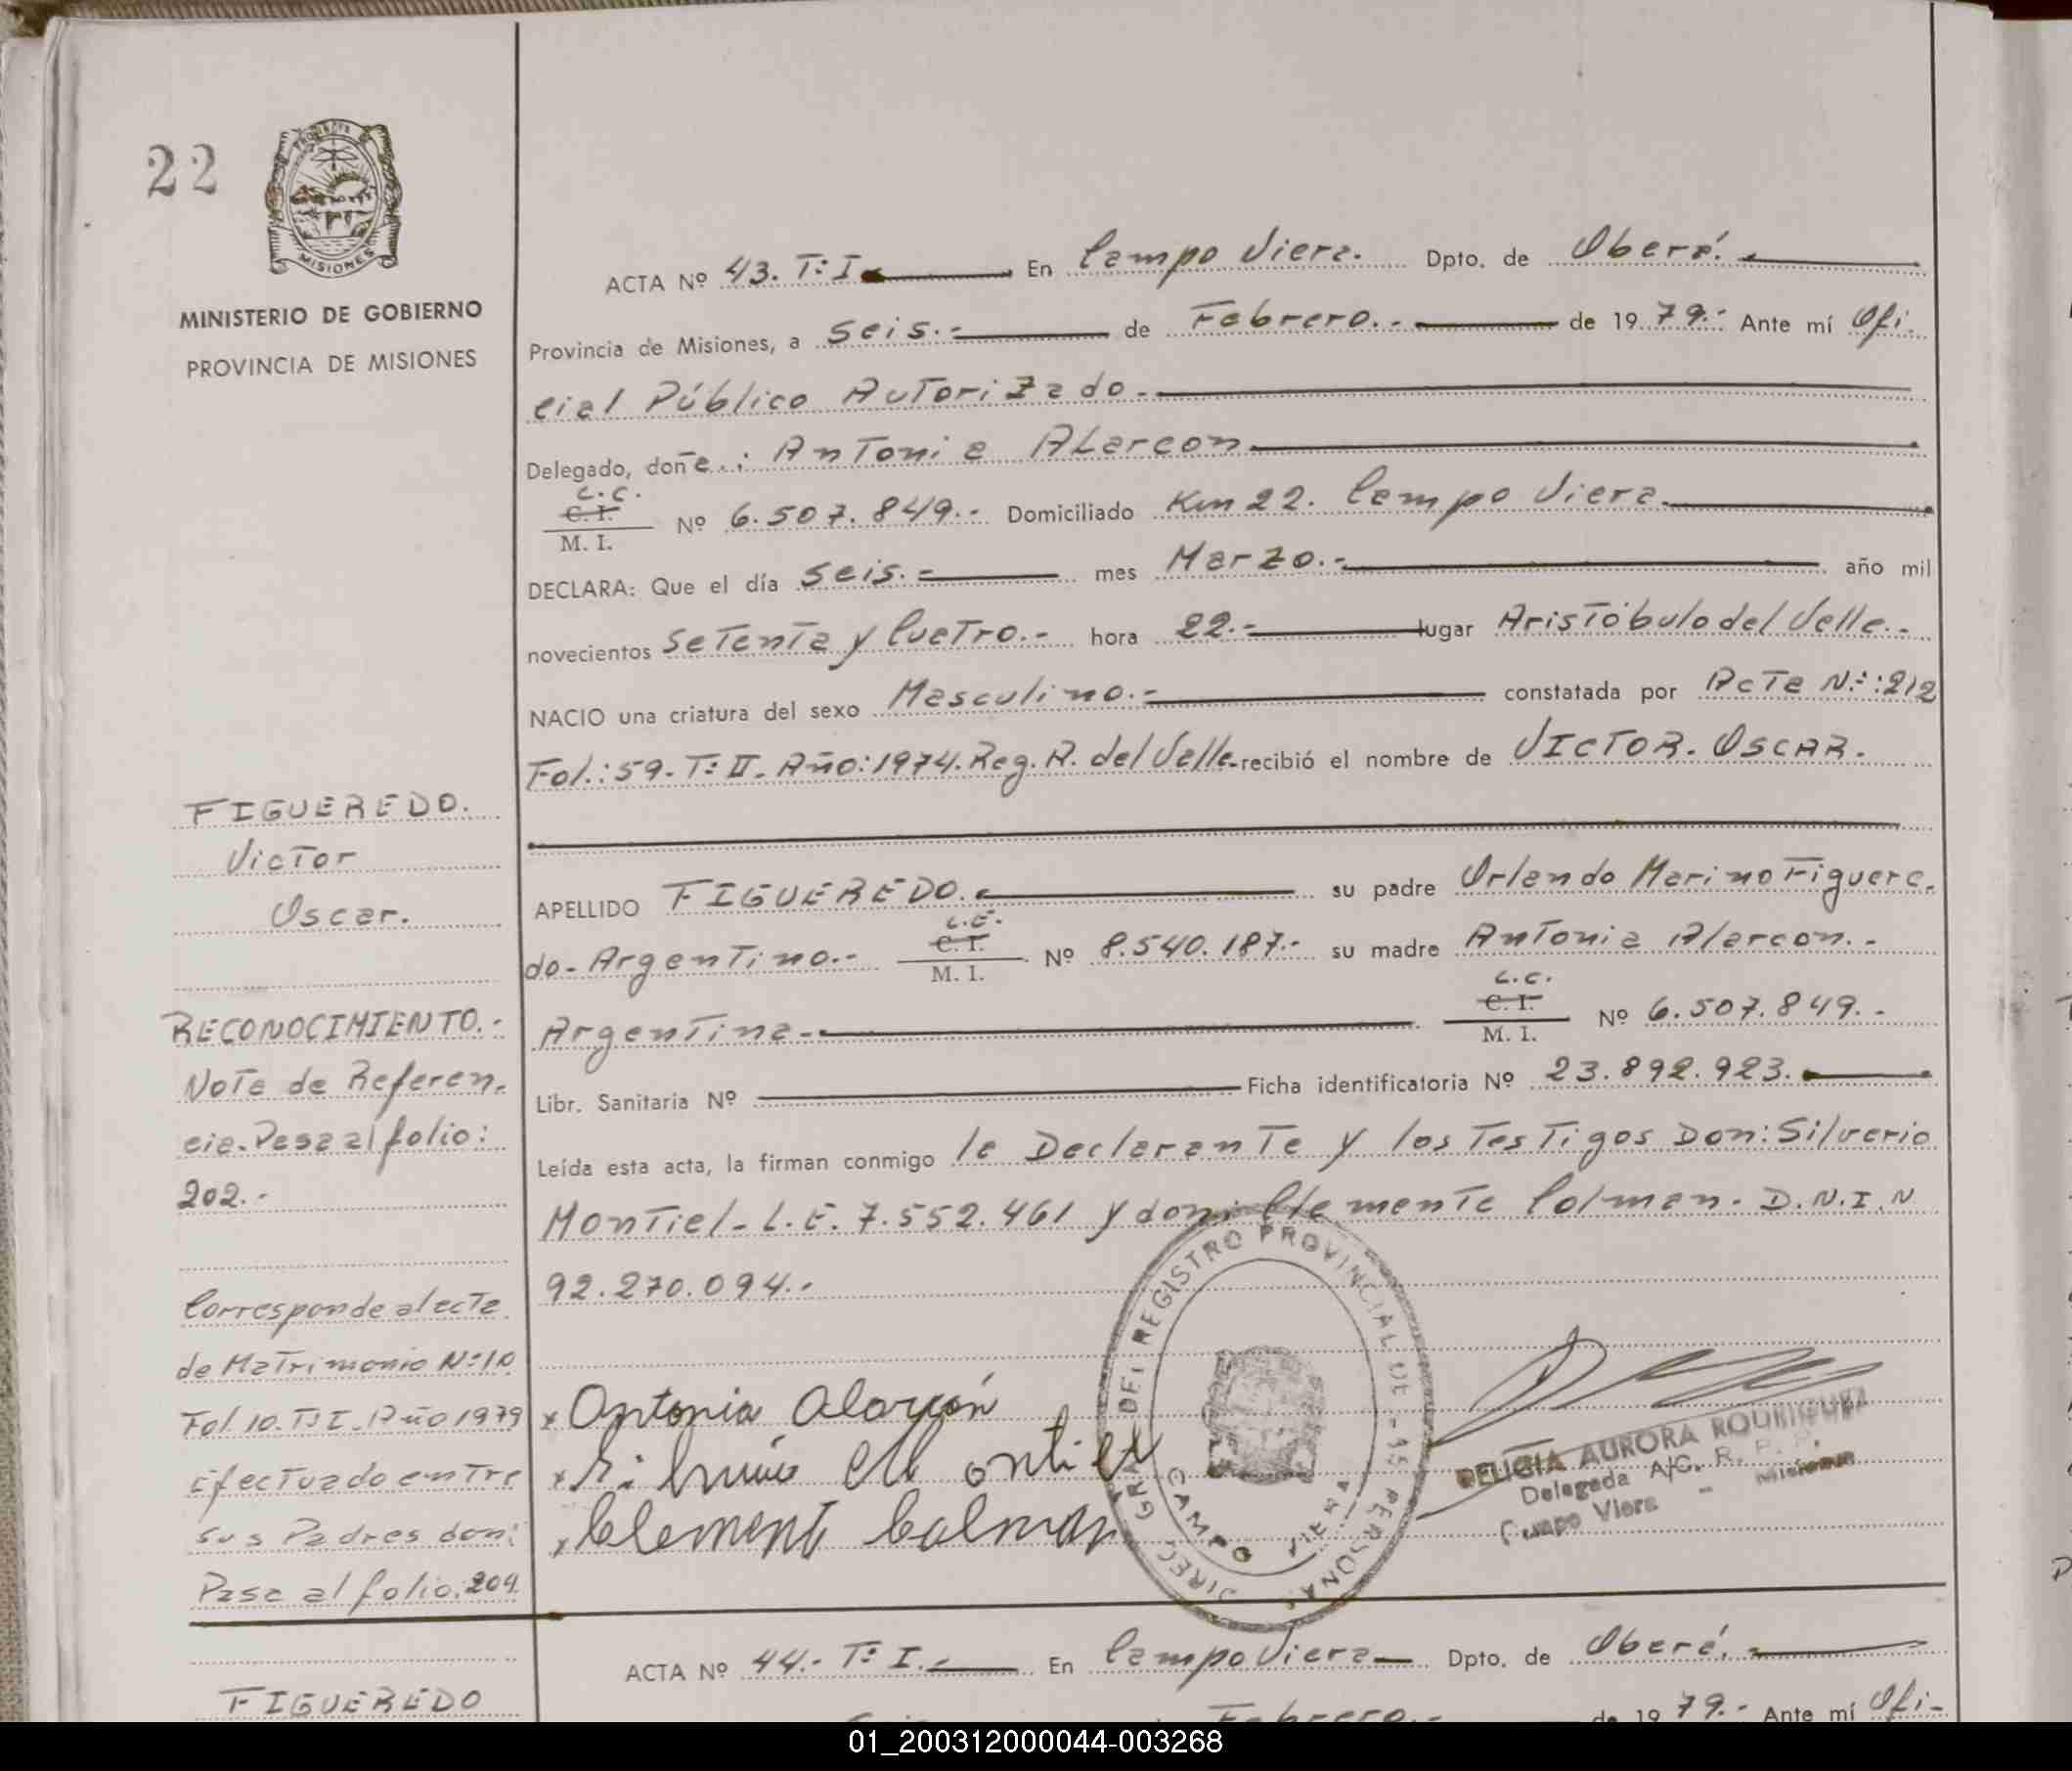 22
PROVINCIA
MISIONES
MINISTERIO DE GOBIERNO
PROVINCIA DE MISIONES
FIGUEREDO.
Victor
Oscar.
RECONOCIMIENTO.-
Nota de Referen.
cia. Pasa al folio:
202.-
Corresponde al acta
de Matrimonio Nº 10
Fol. 10. Tº I. Año 1979
Efectuado entre
sus Padres don:
Pasa al folio: 204.
FIGUEREDO
ACTA Nº 43. Tº I. En Campo Viera. Dpto. de Oberá.
Provincia de Misiones, a Seis.- de Febrero.- de 1979.- Ante mí Ofi.
cial Público Autorizado.-
Delegado, doña.: Antonia Alarcon.
L.C.
C. I.
M. I. Nº 6.507.849.- Domiciliado Km 22. Campo Viera.
DECLARA: Que el día Seis.- mes Marzo.- año mil
novecientos Setenta y Cuatro.- hora 22.- lugar Aristóbulo del Valle.-
NACIO una criatura del sexo Masculino.- constatada por Acta Nº: 212
Fol.: 59. Tº II. Año: 1974. Reg. A. del Valle. recibió el nombre de VICTOR. OSCAR.
APELLIDO FIGUEREDO. su padre Orlando Marino Figuere.
do- Argentino.- L.E. C. I. M. I. Nº 8.540.187.- su madre Antonia Alarcon.-
Argentina- L.C. C. I. M. I. Nº 6.507.849.-
Libr. Sanitaria Nº Ficha identificatoria Nº 23.892.923.
Leída esta acta, la firman conmigo la Declarante y los Testigos Don: Silverio
Montiel- L.E. 7.552.461 y don: Clemente Colman. D.N.I.N
92.270.094.-
x Antonia Alarcón
x Silverio Montiel
x Clemente Colman
DIREC. GRAL. DEL REGISTRO PROVINCIAL DE LAS PERSONAS
CAMPO VIERA
DELICIA AURORA RODRIGUEZ
Delegada A/C. R. P. P.
Campo Viera - Misiones
ACTA Nº 44.- Tº I.- En Campo Viera Dpto. de Oberá.
Febrero.- de 1979.- Ante mí Ofi-
01_200312000044-003268